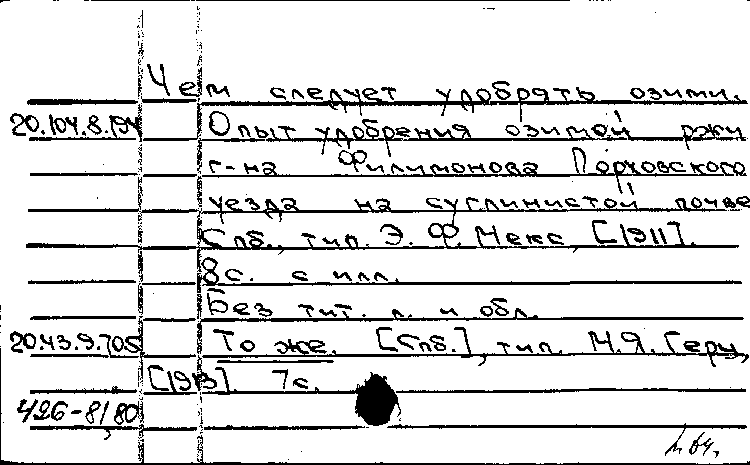 Чем следует удобрять озими.
20.104.8.194 Опыт удобрения озимой ржи
г-на Филимонова Порховского
уезда на суглинистой почве
Спб., тип. Э. Ф. Мекс, [1911].
8 с. с илл.
Без тит. л. и обл.
20.43.9.705 То же. [Спб.], тип. М.Я. Герц,
[1913] 7 с.
426-81,80